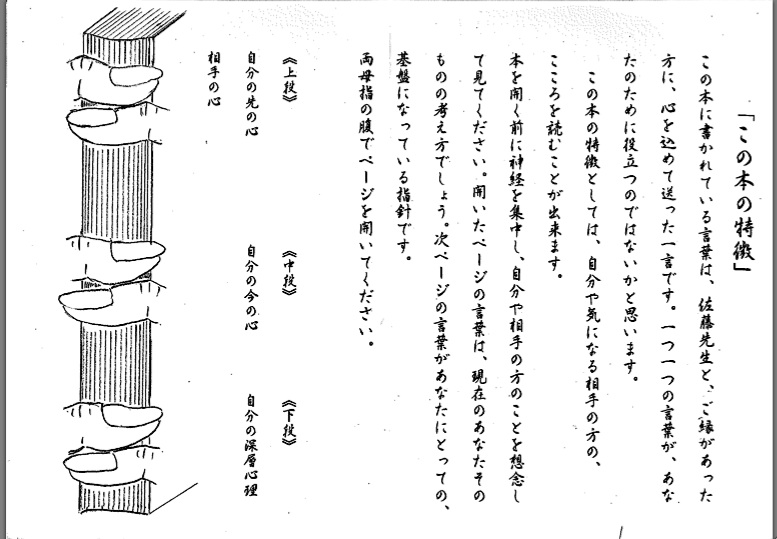 「この本の特徴」
この本に書かれている言葉は、佐藤先生と、ご縁があった
方に、心を込めて送った一言です。一つ一つの言葉が、あな
たのために役立つのではないかと思います。
この本の特徴としては、自分や気になる相手の方の、
こころを読むことが出来ます。
本を開く前に神経を集中し、自分や相手の方のことを想念し
て見てください。開いたページの言葉は、現在のあなたその
ものの考え方でしょう。次ページの言葉があなたにとっての、
基盤になっている指針です。
両母指の腹でページを開いてください。
《上段》
自分の先の心
相手の心
《中段》
自分の今の心
《下段》
自分の深層心理
1